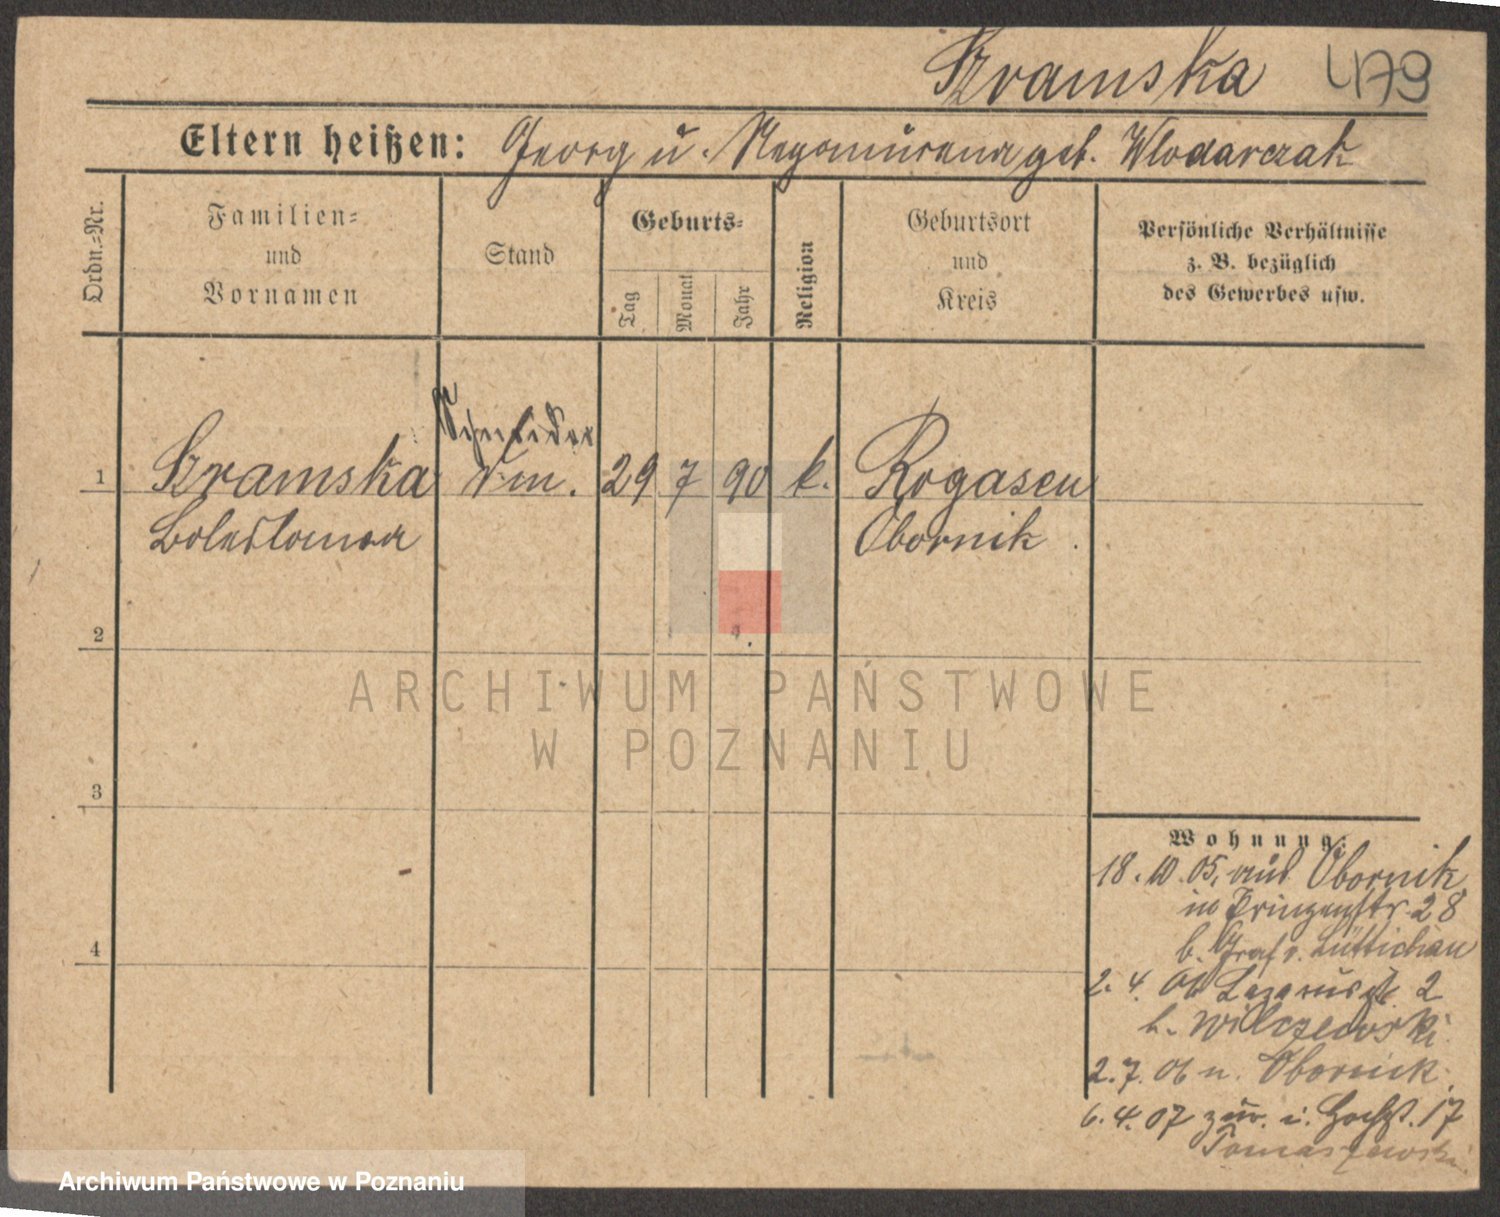 Szramska 479
Eltern heißen: Georg u. geb. Wlodarczak
Ordn.=Nr.
Familien=
und
Vornamen
Stand
Geburts=
Tag
Monat
Jahr
Religion
Geburtsort
und
Kreis
Persönliche Verhältnisse
z. B. bezüglich
des Gewerbes usw.
Schneider
1 Szramska 29 7 90 k. Rogasen
Boleslawa Obornik
2
3
4
ARCHIWUM PAŃSTWOWE
W POZNANIU
Wohnung:
18. 10. 05, aus Obornik
in Prinzenstr. 28
b. Graf v. Lüttichau
2. 4. 06 Lazarusstr. 2
b. Wilczewski
2. 7. 06 n. Obornik
6. 4. 07 zur. i. 17
Tomaszewski
Archiwum Państwowe w Poznaniu